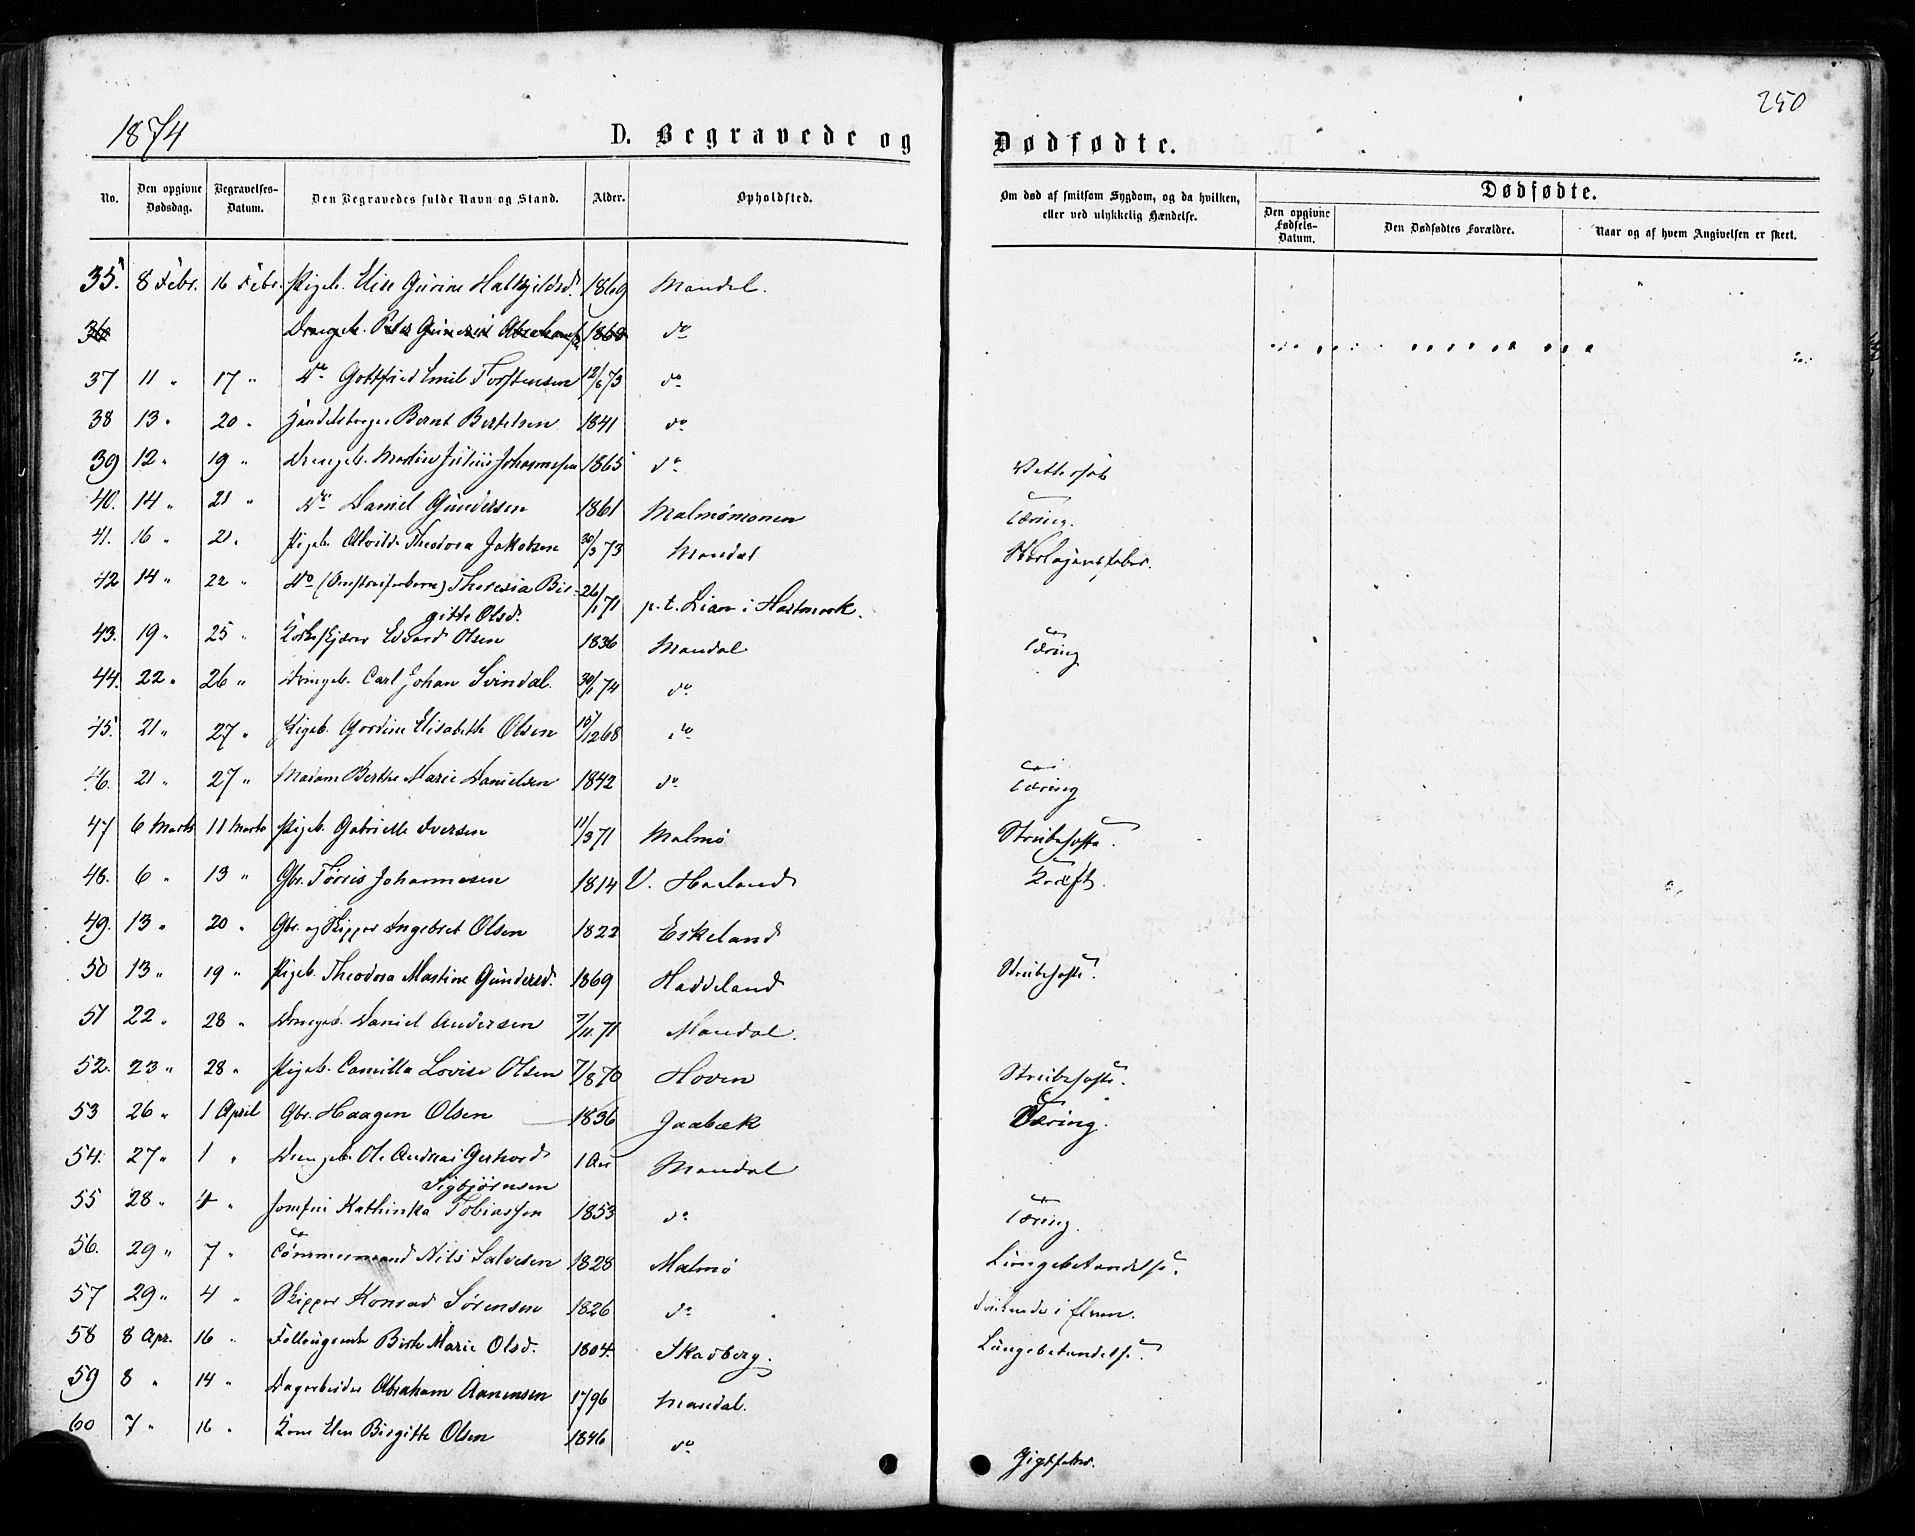 1874
250
D. Begravede og Dødfødte.
No. Den opgivne Dødsdag. Begravelses-Datum. Den Begravedes fulde Navn og Stand. Alder. Opholdsted. Om død af smitsom Sygdom, og da hvilken, eller ved ulykkelig Hændelse. Dødfødte.
Den opgivne Fødsels-Datum. Den Dødfødtes Forældre. Naar og af hvem Angivelsen er skeet.
35. 8 Febr. 16 Febr. Pigeb. Elise Gurine Halkjildsd. 1869 Mandal.
36 Drengeb. Peter Gunerius Abrahamsen 1868 do
37 11 " 17 " do Gottfried Emil Torstensen 12/6 73 do
38 13 " 20 " Handelsborger Bernt Bertelsen 1841 do
39 12 " 19 " Drengeb. Martin Julius Johannessen 1865 do Vattersot
40. 14 " 21 " do Daniel Gundersen 1861 Malmømonen Tæring.
41. 16 " 21 " Pigeb. Alvilde Theodora Jakobsen 30/3 73 Mandal Skarlagensfeber.
42 14 " 22 " do (Omstreiferbarn) Theresia Bir-
gitte Olsd. 26/1 71 p. t. Lian i Haltmark.
43. 19 " 25 " Edvard Olsen 1836 Mandal Tæring
44. 22 " 26 " Drengeb. Carl Johan Svindal. 30/1 74 do
45. 21 " 27 " Pigeb. Gordine Elisabeth Olsen 15/12 68 do
46. 21 " 27 " Madam Berthe Marie Danielsen 1842 do Tæring
47 6 Marts 11 Marts Pigeb. Gabrielle Iversen 11/3 71 Malmø Strubehoste.
48. 6 " 13 " Gbr. Tørris Johannesen 1814 V. Haaland Kræft.
49. 13 " 20 " Gbr. og Skipper Ingebret Olsen 1822 Eskeland
50 13 " 19 " Pigeb. Theodora Martine Gundersd. 1869 Haddeland Strubehoste.
51 22 " 28 " Drengeb. Daniel Andersen 7/11 71 Mandal.
52. 23 " 28 " Pigeb. Camilla Lovise Olsen 7/8 70 Hoven Strubehoste.
53 26 " 1 April Gbr. Haagen Olsen 1836 Jaabæk Tæring.
54. 27 " 1 " Drengeb. Ole Andreas Gerhard
Sigbjørnsen 1 Aar Mandal
55 28 " 4 " Jomfru Kathinka Tobiassen 1853 do Tæring.
56. 29 " 7 " Tømmermand Nils Salvesen 1828 Malmø Lungebetændelse.
57 29 " 4 " Skipper Konrad Sørensen 1826 do Druknede i Elven.
58 8 Apr. 16 " Follaugsenke Birte Marie Olsd. 1804. Skadberg. Lungebetændelse.
59 8 " 14 " Dagarbeider Abraham Aanensen 1796 Mandal.
60 7 " 16 " Kone Elen Birgitte Olsen 1846 do Gigtfeber.